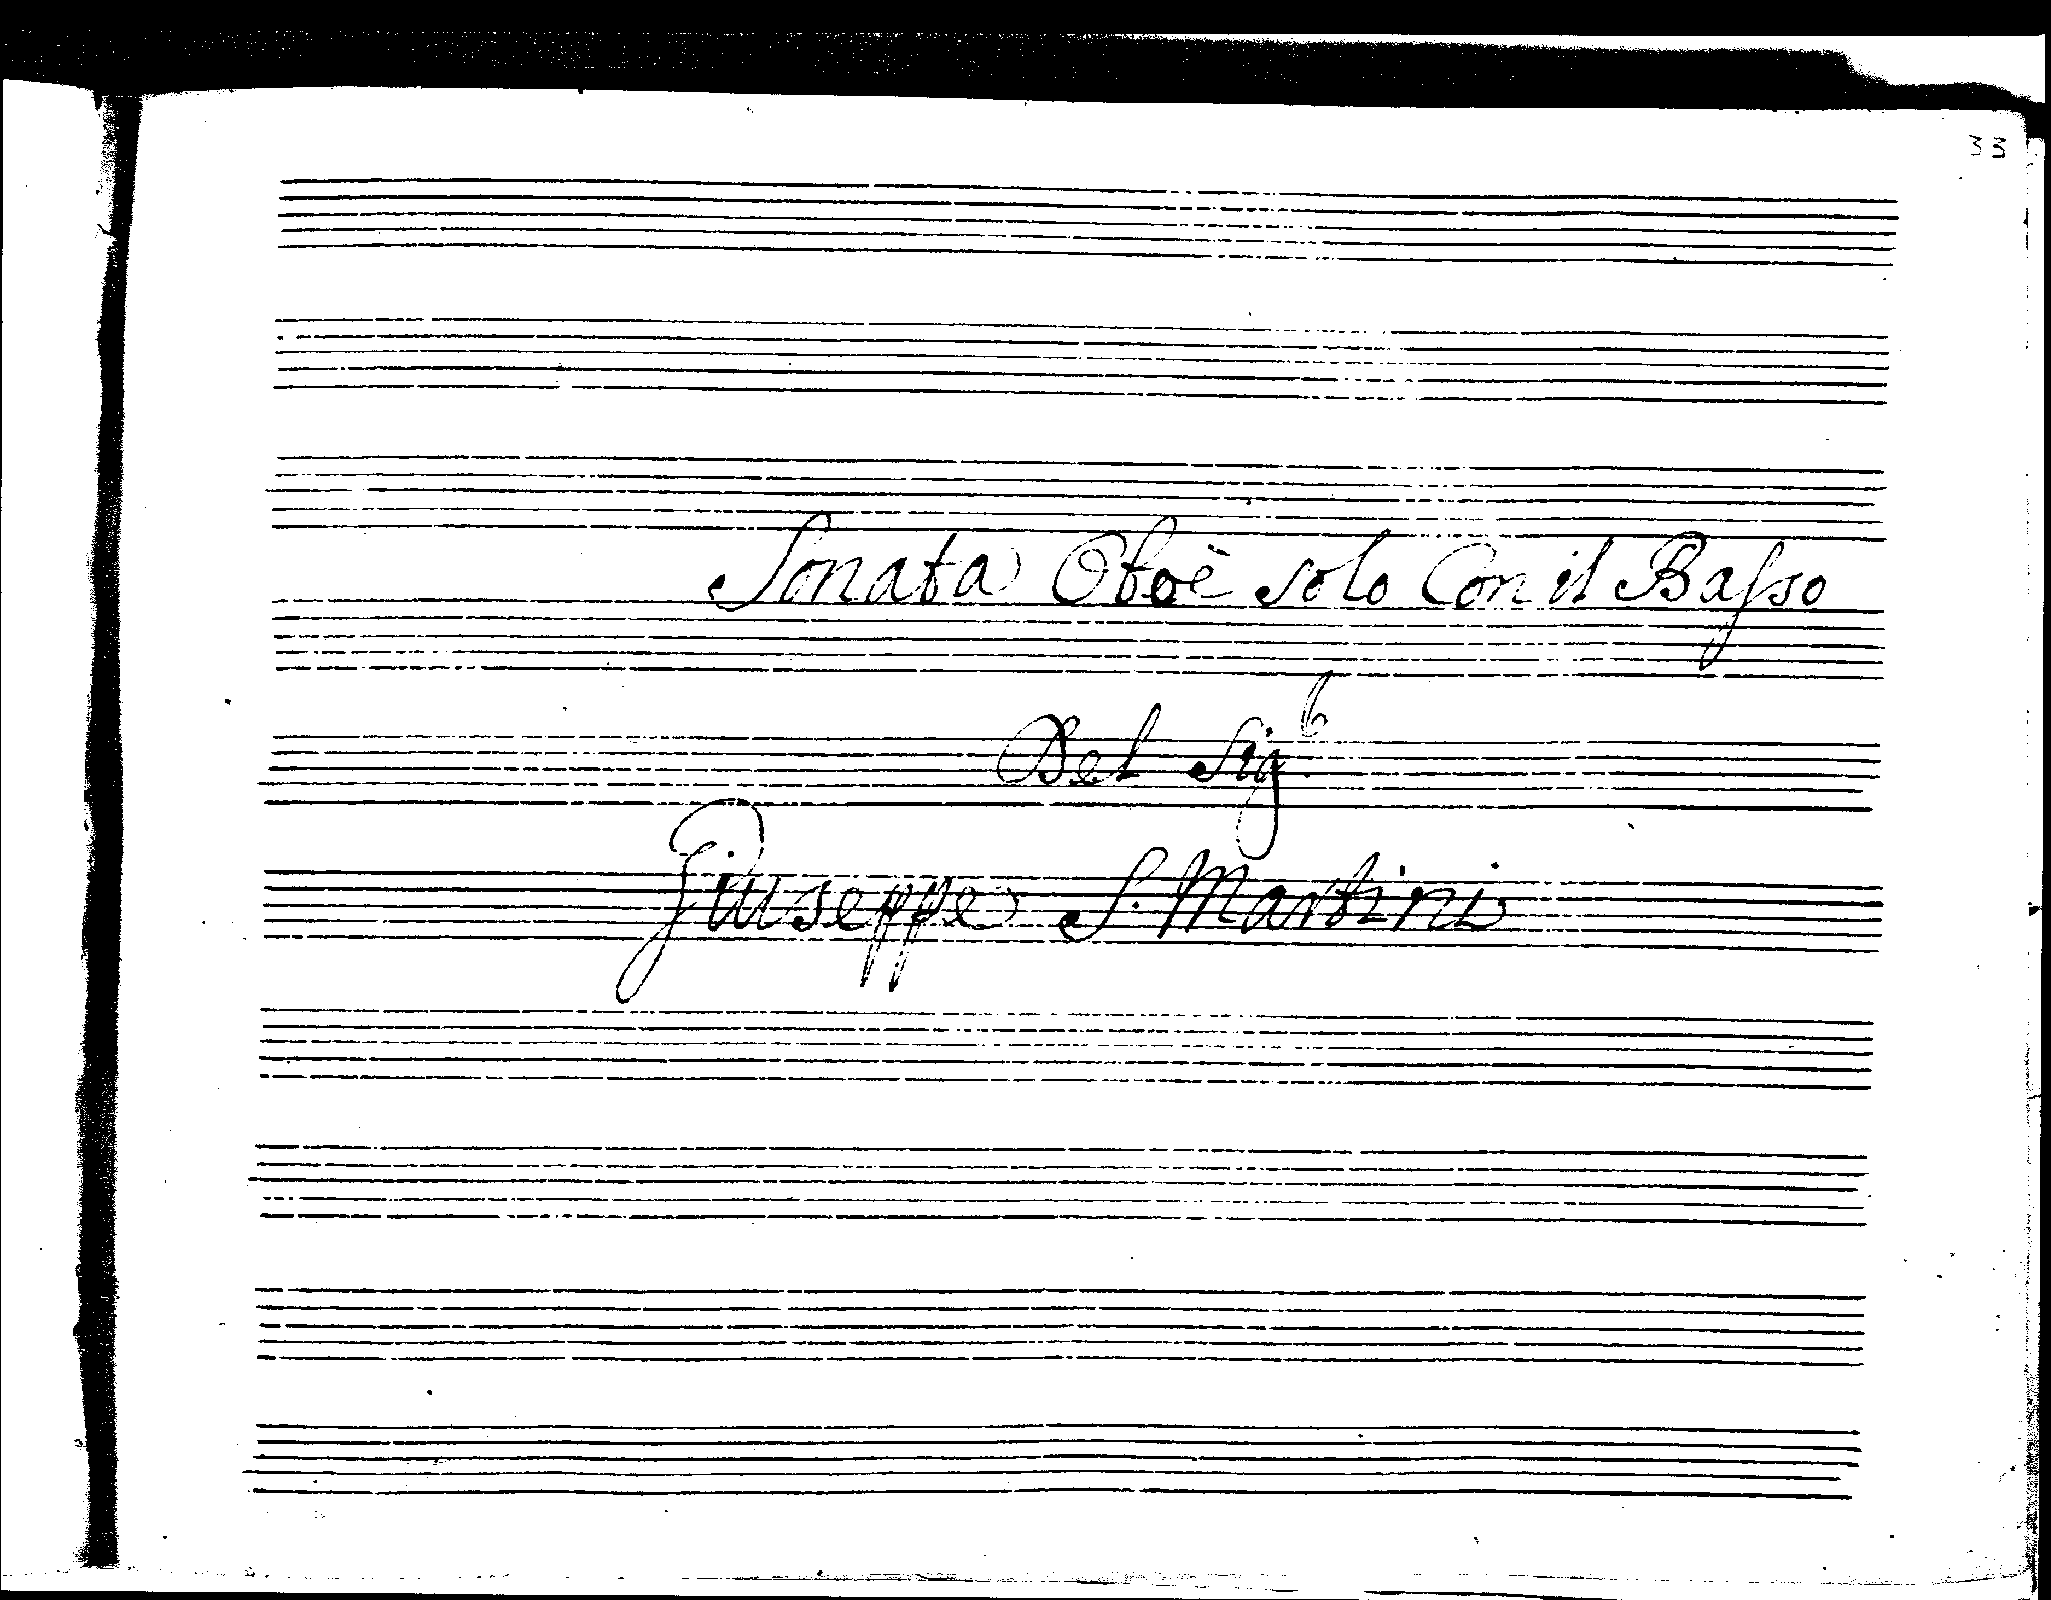 33
Sonata Oboè solo Con il Baſso
Del Sig.r
Giuseppe S. Martini